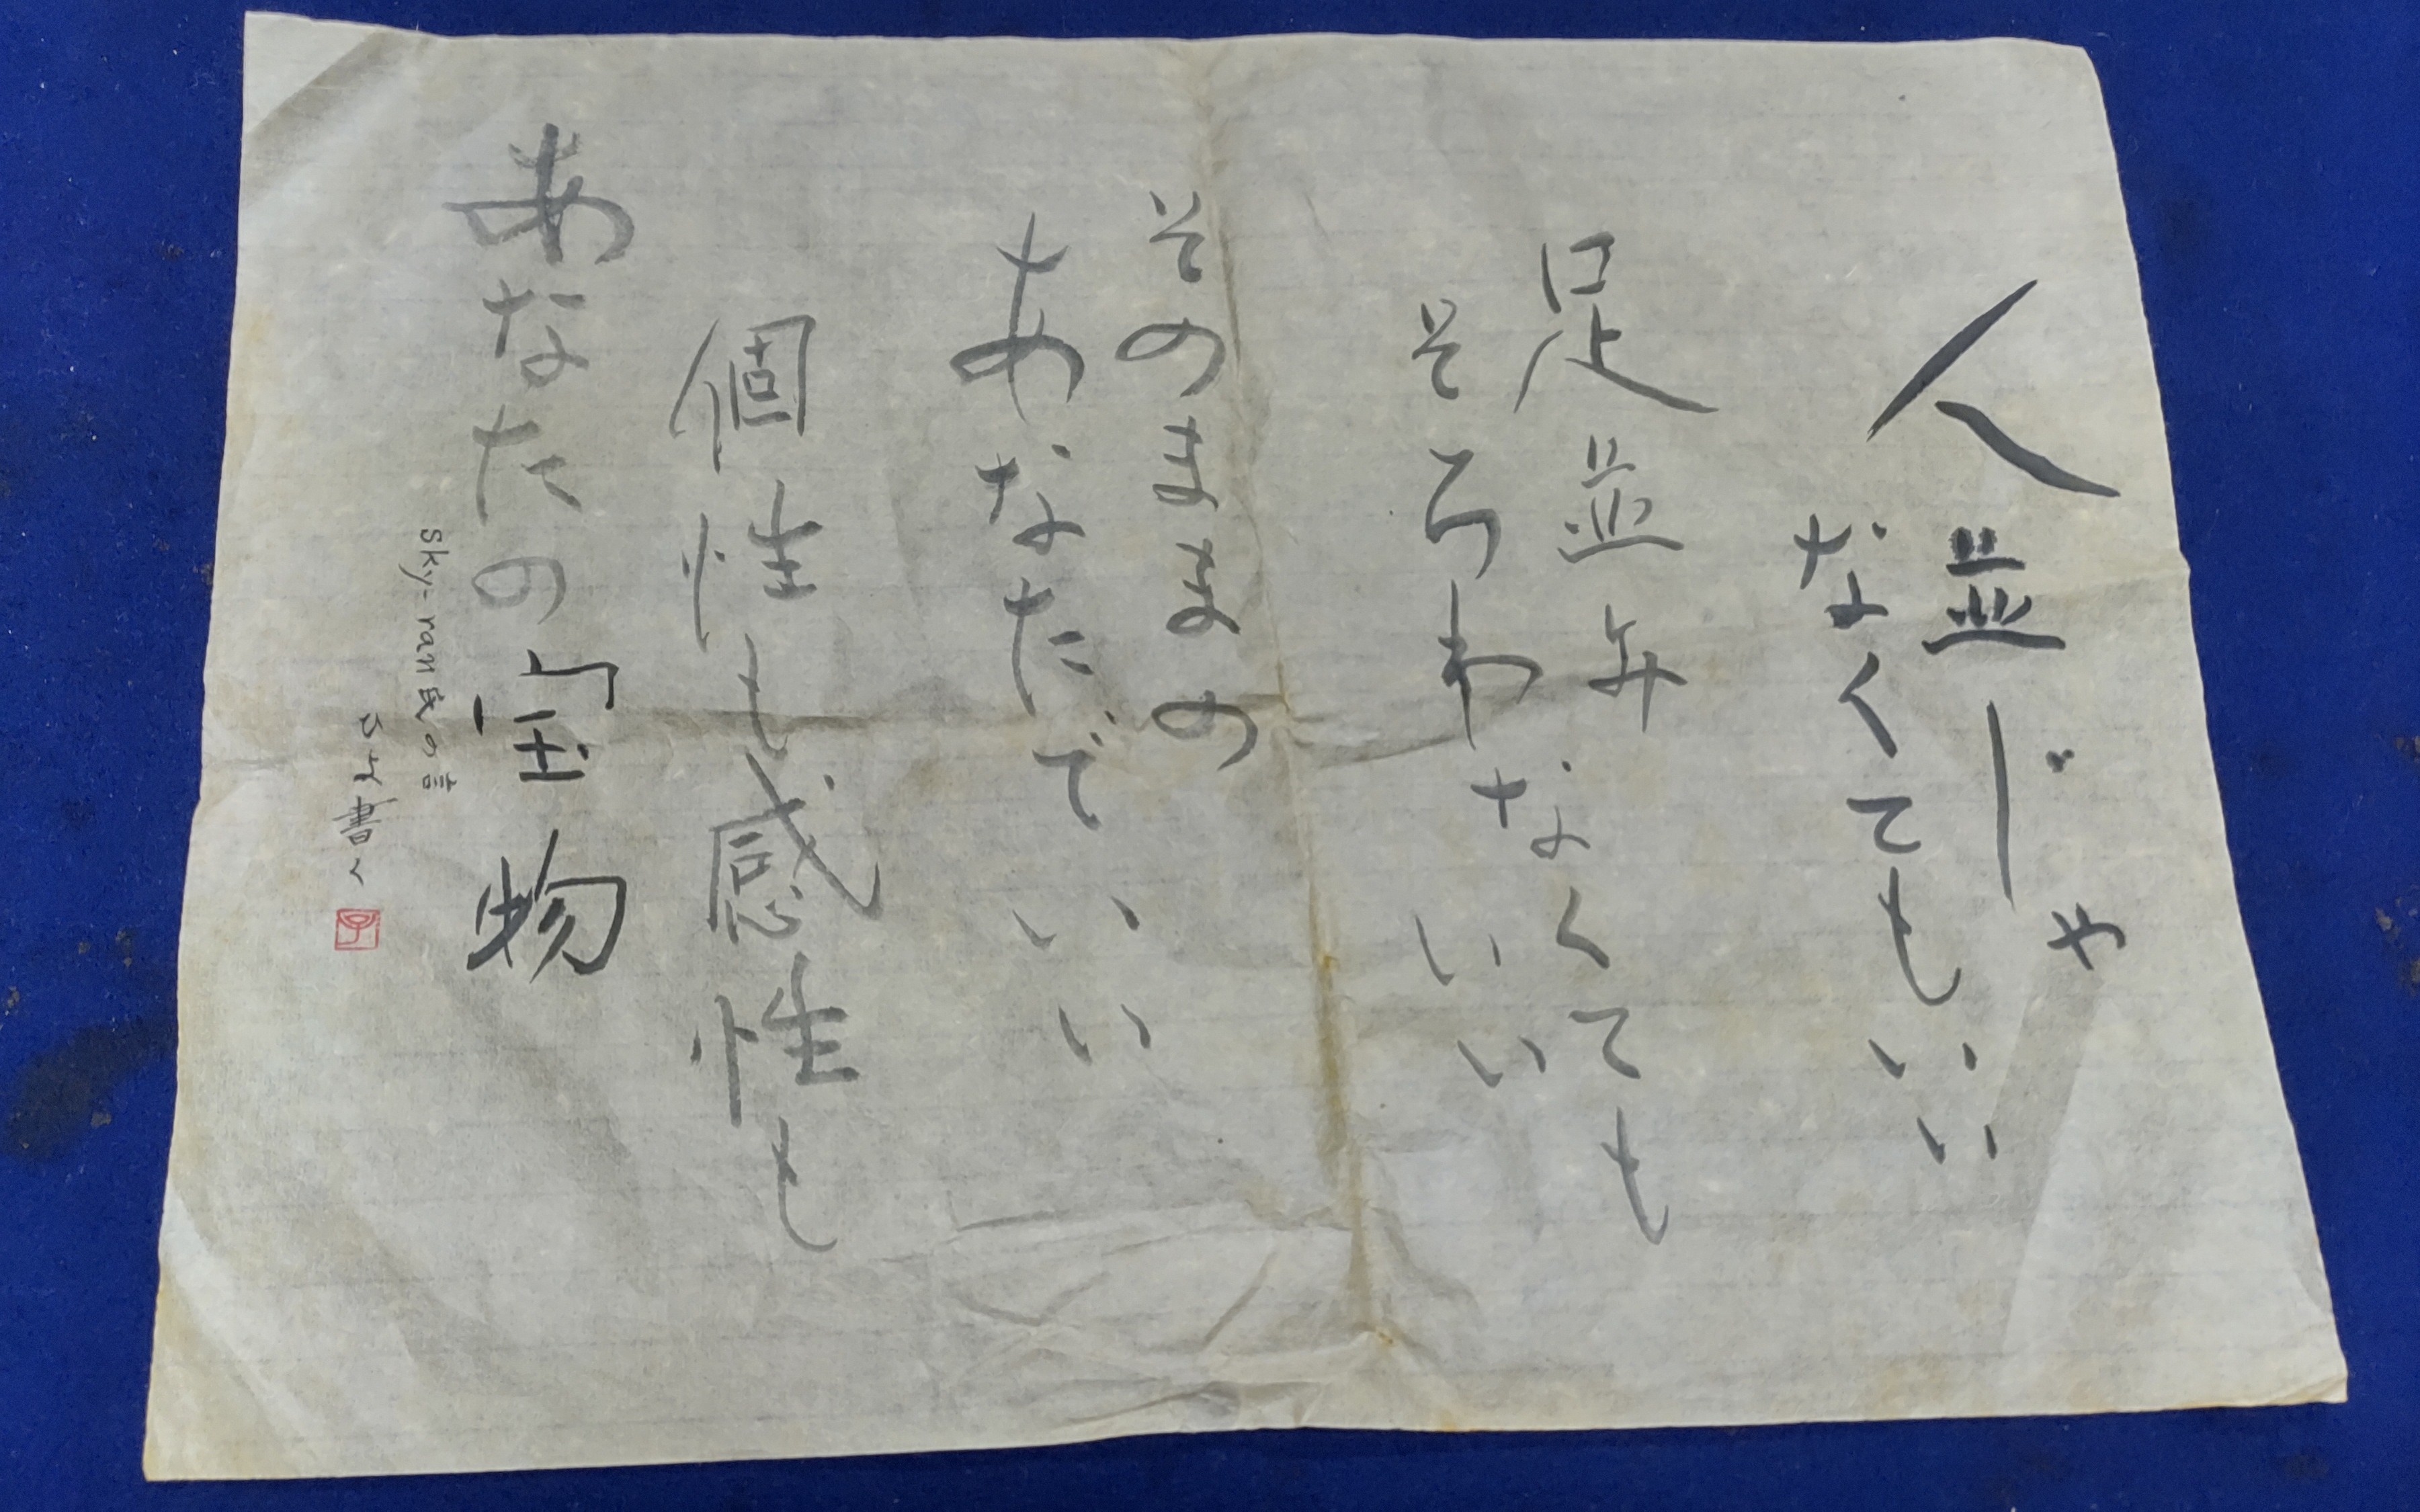 人並じゃ
なくてもいい
足並みなくても
そろわないい
そのままの
あなたでいい
個性も感性も
あなたの宝物
sky-ran氏の言
書く